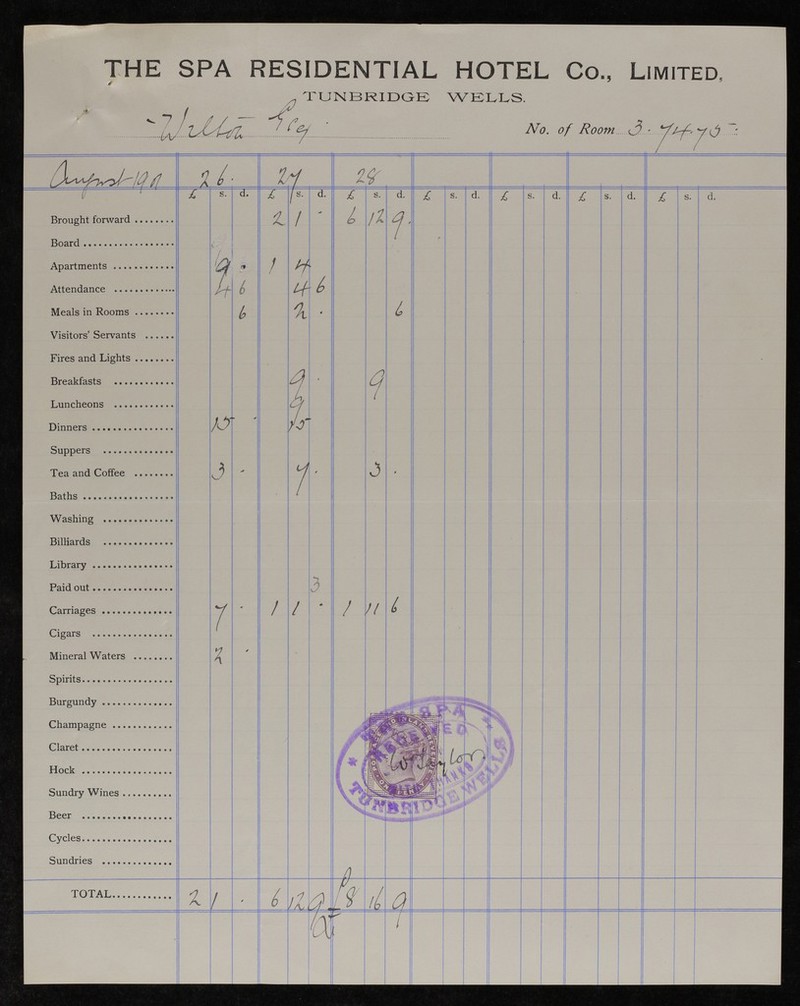 THE SPA RESIDENTIAL HOTEL Co., LIMITED,
TUNBRIDGE WELLS.
Wilton Esq No. of Room 3. 74.75
August 26. 27 28
£ s. d. £ s. d. £ s. d. £ s. d. £ s. d. £ s. d. £ s. d.
Brought forward ........ 2 1 - 6 12 9.
Board ..................
Apartments ............ 9 - 1 4
Attendance ............. 4 6 4 6
Meals in Rooms ........ 6 2 . 6
Visitors' Servants ......
Fires and Lights ........
Breakfasts ............ 9 - 9
Luncheons ............ 9
Dinners ................ 15 - 15
Suppers ..............
Tea and Coffee ........ 3 - 7 . 3 .
Baths ..................
Washing ..............
Billiards ..............
Library ................
Paid out ................ 3
Carriages .............. 7 - 1 1 - 1 11 6
Cigars ................
Mineral Waters ........ 2 -
Spirits ..................
Burgundy ..............
Champagne ............
Claret ..................
Hock ..................
Sundry Wines ..........
Beer ..................
Cycles ..................
Sundries ..............
SPA
W Taylor
THANKS
TUNBRIDGE WELLS
TOTAL ............ 2 1 - 6 12 9 £8 16 9